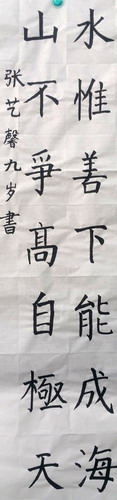 水惟善下能成海
山不爭髙自極天
张艺馨九岁書